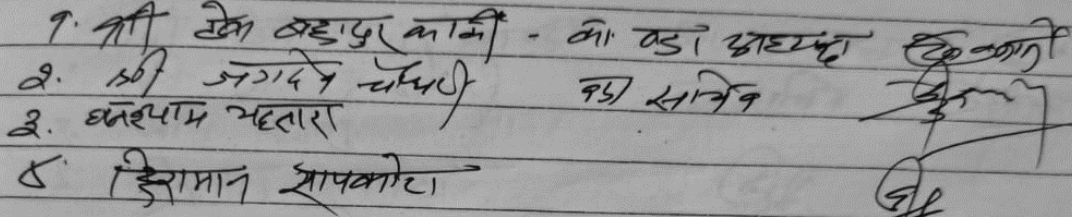 १. श्री टेक बहादुर कामी - का. वडा अध्यक्ष
२. श्री जगदेव चौधरी वडा सचिव
३. घनश्याम महतारा
४. हिरामान सापकोटा